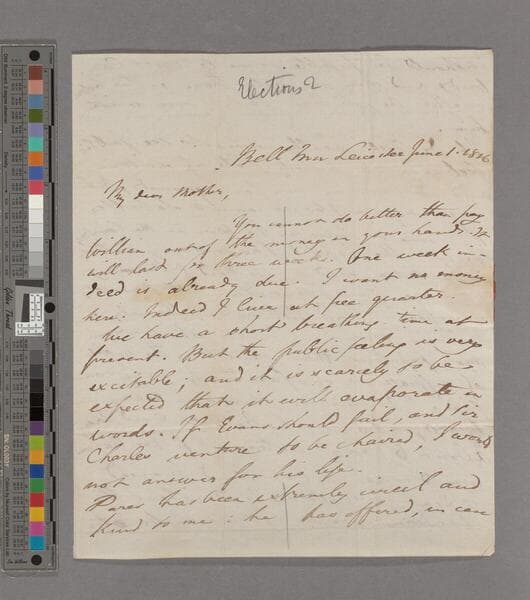 Elections 2
Bell Inn Leicester June 1. 1826
My dear Mother,
You cannot do better than pay
William out of the money in your hands. It
will last for three weeks. One week in-
deed is already due. I want no money
here. Indeed I live at free quarter.
We have a short breathing time at
present. But the public feeling is very
excitable; and it is scarcely to be
expected that it will evaporate in
words. If Evans should fail, and Sir
Charles venture to be chaired, I would
not answer for his life.
Pares has been extremely civil and
kind to me: he has offered, in case